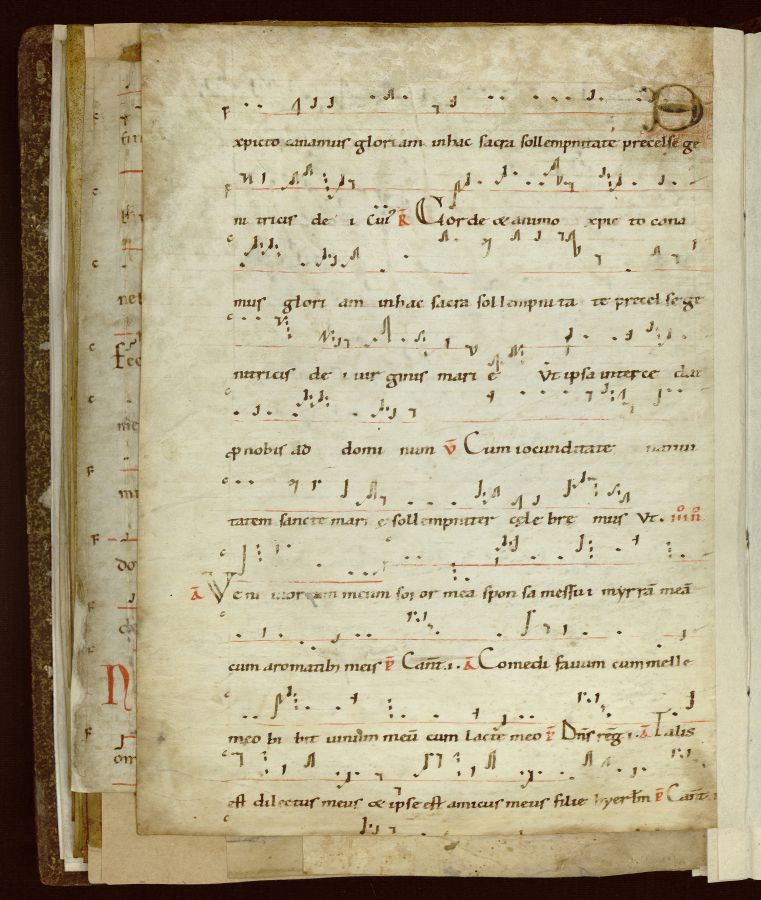 D
xpicto canamus gloriam inhac sacra sollempnitate precelse ge
ni tricis de i Cui⁹ R̄ Corde & animo xpic to cana
mus glori am inhac sacra sollempni ta te precel se ge
nitricis de i uir ginis mari e Vt ipsa interce dat
ꝓ nobis ad domi num v̄ Cum iocunditate natiui
tatem sancte mari e sollempniter cele bre mus Vt. iii n̄
ā Ve ni meum sor or mea spon sa messu i myrrā meā
cum aromatibꝰ meis p̄ Cant̄.i. ā Comedi fauum cum melle
meo bi bit uinum meū cum lacte meo p̄ Dn̄s reg̃.i. ā Talis
est dilectus meus & ipse est amicus meus filie hyerłm p̄ Cant̄.